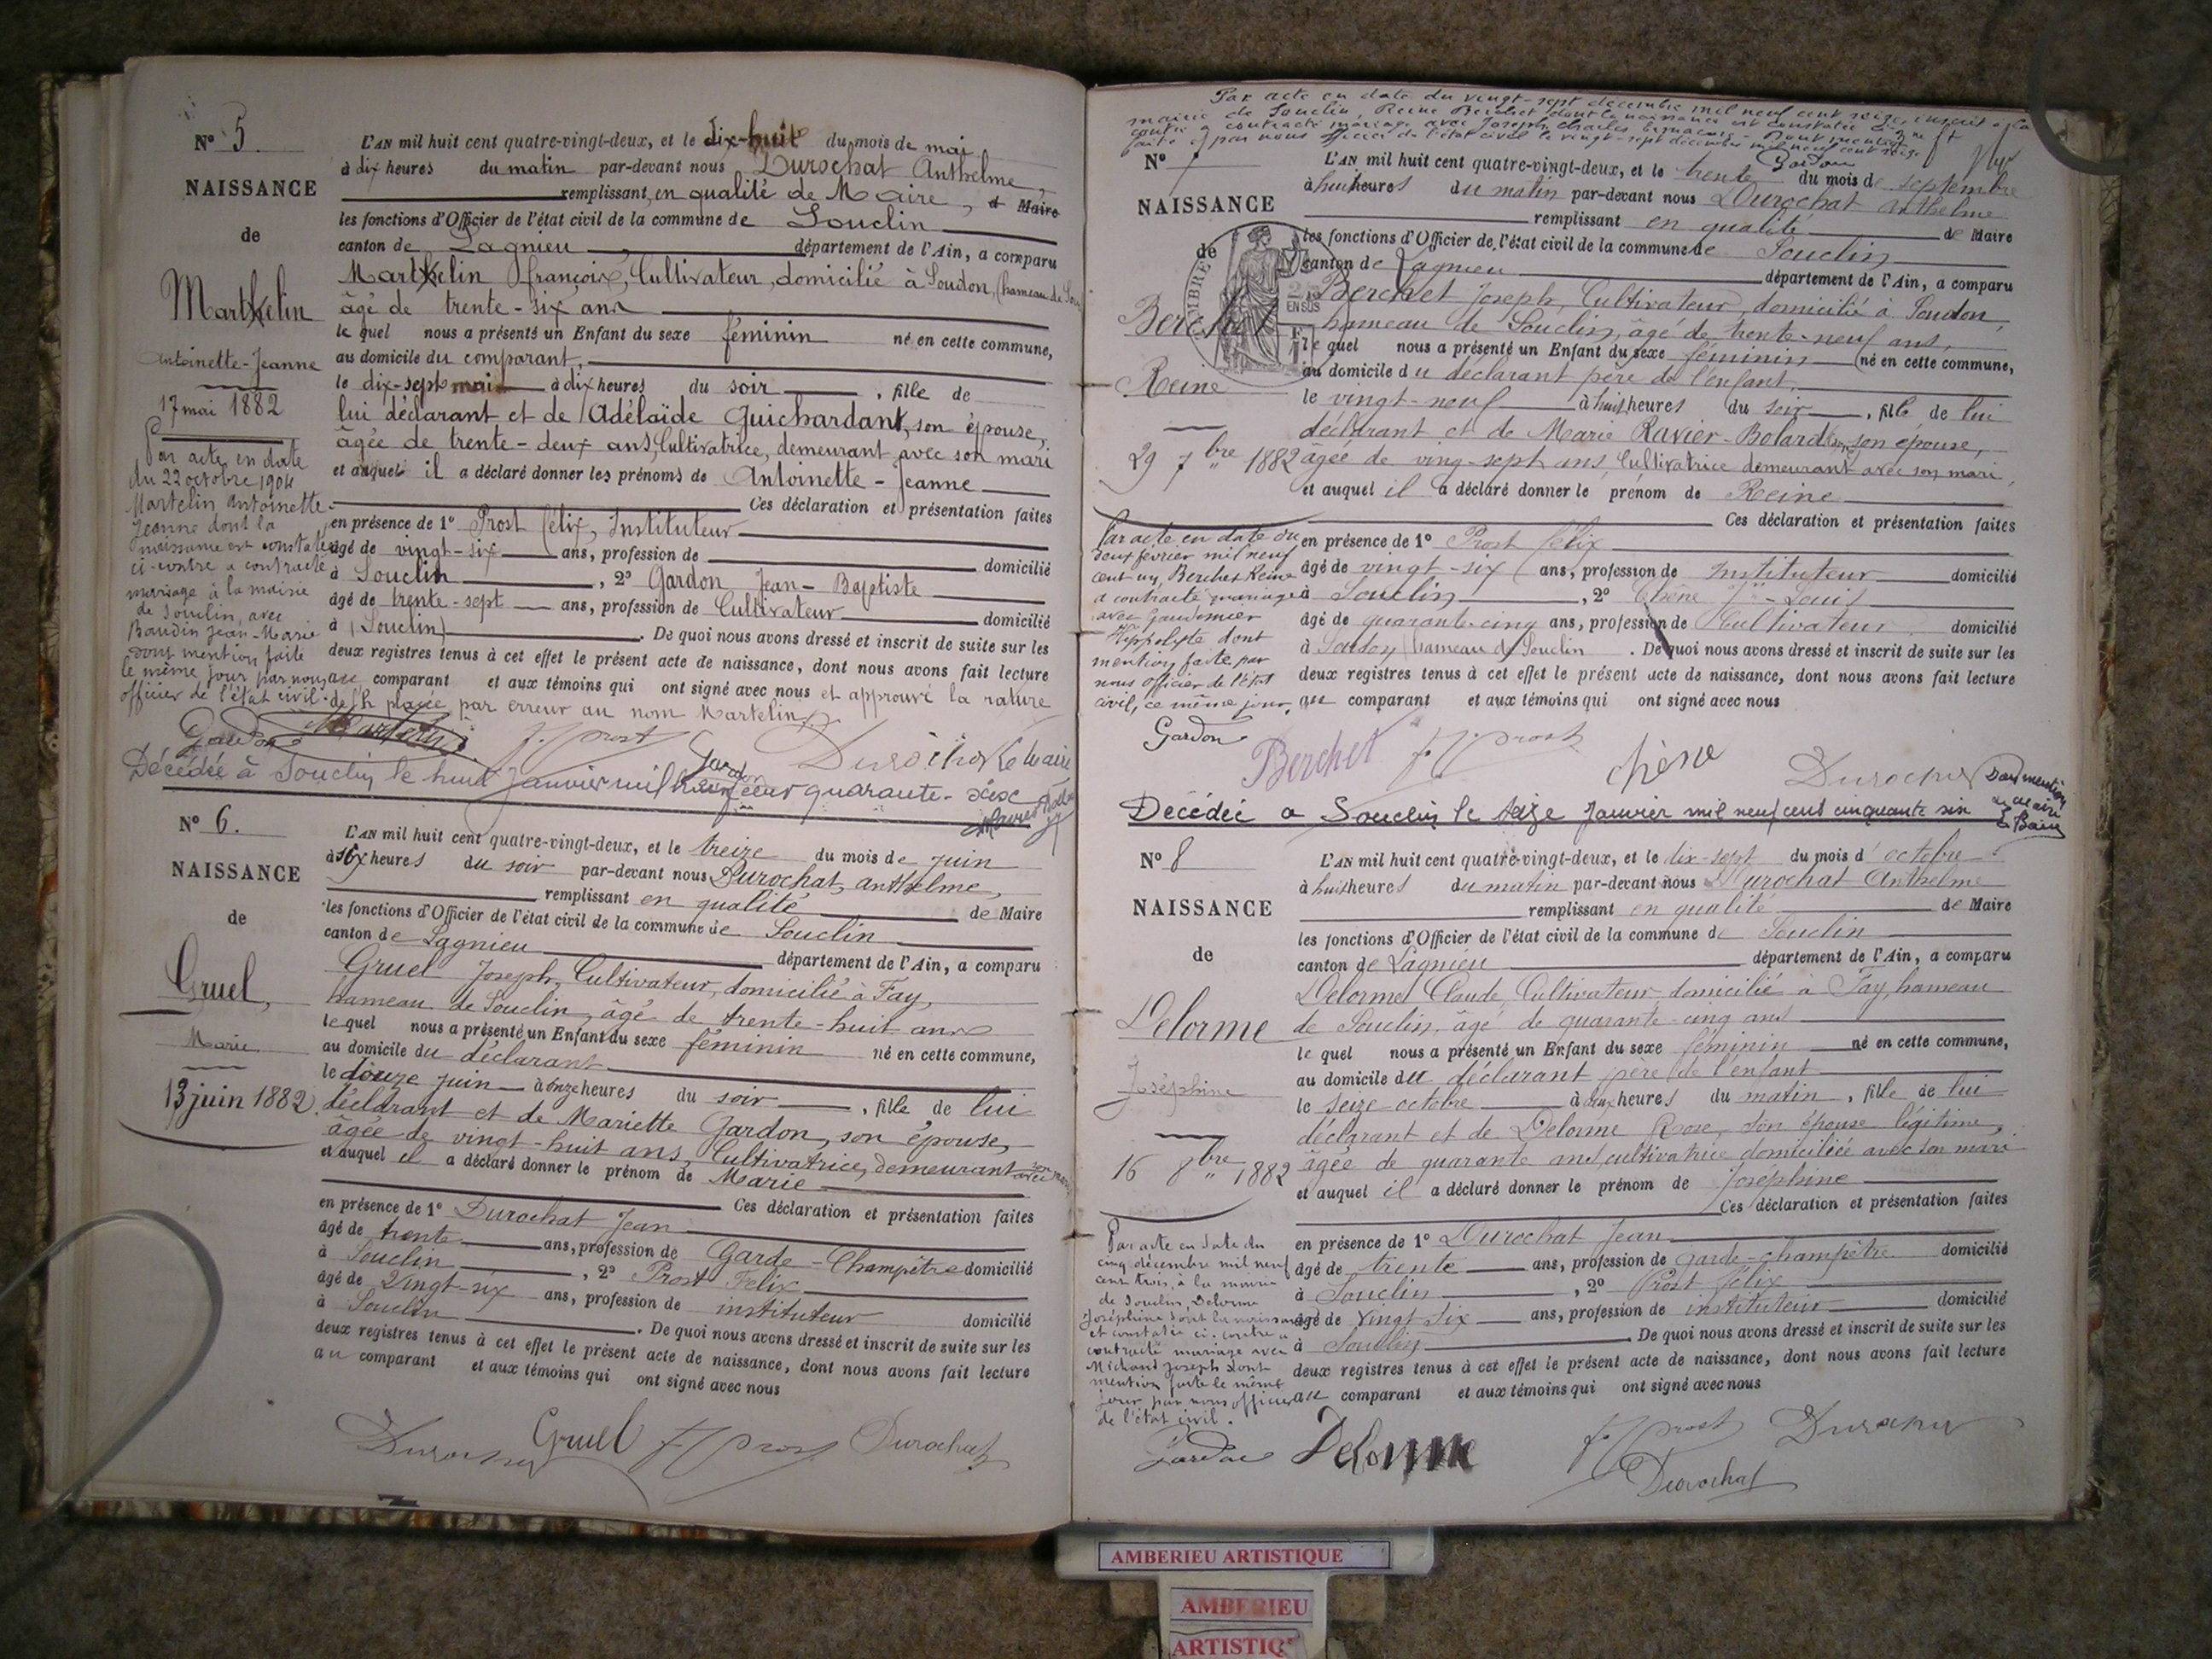 N° 5.
NAISSANCE
de
Martelin
Antoinette-Jeanne
17 mai 1882
Par acte en date
du 22 octobre 1904
Martelin Antoinette
Jeanne dont la
naissance est constatée
ci-contre a contracté
mariage à la mairie
de Souclin, avec
Baudin Jean-Marie
dont mention faite
le même jour par nous
officier de l'état civil.
L'AN mil huit cent quatre-vingt-deux, et le dix-huit du mois de mai
à dix heures du matin par-devant nous Durochat Anthelme,
remplissant, en qualité de Maire, Maire
les fonctions d'Officier de l'état civil de la commune de Souclin
canton de Lagnieu département de l'Ain, a comparu
Marthelin françois, Cultivateur, domicilié à Soudon, (hameau de
âgé de trente-six ans
le quel nous a présenté un Enfant du sexe féminin né en cette commune,
au domicile du comparant,
le dix-sept mai à dix heures du soir, fille de
lui déclarant et de Adélaïde Guichardant, son épouse,
âgée de trente-deux ans, Cultivatrice, demeurant avec son mari
et auquel il a déclaré donner les prénoms de Antoinette-Jeanne
Ces déclaration et présentation faites
en présence de 1° Prost félix, Instituteur
âgé de vingt-six ans, profession de domicilié
à Souclin, 2° Gardon Jean-Baptiste
âgé de trente-sept ans, profession de Cultivateur domicilié
à (Souclin). De quoi nous avons dressé et inscrit de suite sur les
deux registres tenus à cet effet le présent acte de naissance, dont nous avons fait lecture
au comparant et aux témoins qui ont signé avec nous et approuvé la rature
de l'h placée par erreur au nom Martelin.
Gardon Martelin f. Prost Durochat le maire
Décédée à Souclin le huit Janvier mil neuf cent quarante-six
N° 6.
NAISSANCE
de
Gruel,
Marie
13 juin 1882
L'AN mil huit cent quatre-vingt-deux, et le treize du mois de juin
à six heures du soir par-devant nous Durochat, anthelme,
remplissant en qualité de Maire
les fonctions d'Officier de l'état civil de la commune de Souclin
canton de Lagnieu département de l'Ain, a comparu
Gruel Joseph, Cultivateur, domicilié à Fay,
hameau de Souclin, âgé de trente-huit ans
le quel nous a présenté un Enfant du sexe féminin né en cette commune,
au domicile du déclarant
le douze juin à onze heures du soir, fille de lui
déclarant et de Mariette Gardon, son épouse,
âgée de vingt-huit ans, Cultivatrice, demeurant avec son mari
et auquel il a déclaré donner le prénom de Marie
Ces déclaration et présentation faites
en présence de 1° Durochat Jean
âgé de trente ans, profession de Garde-Champêtre domicilié
à Souclin, 2° Prost Felix
âgé de Vingt-six ans, profession de instituteur domicilié
à Souclin. De quoi nous avons dressé et inscrit de suite sur les
deux registres tenus à cet effet le présent acte de naissance, dont nous avons fait lecture
au comparant et aux témoins qui ont signé avec nous
Durochat Gruel f. Prost Durochat
Par acte en date du vingt-sept décembre mil neuf cent seize, inscrit à la
mairie de Souclin, Reine Berchet dont la naissance est constatée ci-
contre a contracté mariage avec Joseph Charles Dont mention
faite par nous officier de l'état civil le vingt-sept décembre mil neuf cent seize
Gardon
N° 7
NAISSANCE
de
Berchet
Reine
29 7bre 1882
TIMBRE
25
EN SUS
Par acte en date du
deux février mil neuf
cent un, Berchet Reine
a contracté mariage
avec Gaudemier
Hippolyte dont
mention faite par
nous officier de l'état
civil, ce même jour,
Gardon
L'AN mil huit cent quatre-vingt-deux, et le trente du mois de septembre
à huit heures du matin par-devant nous Durochat Anthelme
remplissant en qualité de Maire
les fonctions d'Officier de l'état civil de la commune de Souclin
canton de Lagnieu département de l'Ain, a comparu
Berchet Joseph, Cultivateur, domicilié à Soudon,
hameau de Souclin, âgé de trente-neuf ans,
le quel nous a présenté un Enfant du sexe féminin né en cette commune,
au domicile du déclarant père de l'enfant.
le vingt-neuf à huit heures du soir, fille de lui
déclarant et de Marie Ravier-Bolard son épouse,
âgée de ving-sept ans, Cultivatrice demeurant avec son mari,
et auquel il a déclaré donner le prénom de Reine
Ces déclaration et présentation faites
en présence de 1° Prost félix
âgé de vingt-six ans, profession de Instituteur domicilié
à Souclin, 2° Chêne Louis
âgé de quarante-cinq ans, profession de Cultivateur domicilié
à Soudon (hameau de Souclin. De quoi nous avons dressé et inscrit de suite sur les
deux registres tenus à cet effet le présent acte de naissance, dont nous avons fait lecture
au comparant et aux témoins qui ont signé avec nous
Berchet f. Prost chêne Durochat
Décédée a Souclin le seize Janvier mil neuf cent cinquante six
Dont mention
le Maire
N° 8
NAISSANCE
de
Delorme
Joséphine
16 8bre 1882
Par acte en date du
cinq décembre mil neuf
cent trois, à la mairie
de Souclin, Delorme
Joséphine dont la naissance
est constatée ci-contre a
contracté mariage avec
Michaud Joseph dont
mention faite le même
jour par nous officier
de l'état civil.
L'AN mil huit cent quatre-vingt-deux, et le dix-sept du mois d'octobre
à huit heures du matin par-devant nous Durochat Anthelme
remplissant en qualité de Maire
les fonctions d'Officier de l'état civil de la commune de Souclin
canton de Lagnieu département de l'Ain, a comparu
Delorme Claude, Cultivateur domicilié à Fay, hameau
de Souclin, âgé de quarante-cinq ans
le quel nous a présenté un Enfant du sexe féminin né en cette commune,
au domicile du déclarant père de l'enfant
le seize octobre à deux heures du matin, fille de lui
déclarant et de Delorme Rose, son épouse légitime,
âgée de quarante ans, cultivatrice domiciliée avec son mari
et auquel il a déclaré donner le prénom de Joséphine
Ces déclaration et présentation faites
en présence de 1° Durochat Jean
âgé de trente ans, profession de garde-champêtre domicilié
à Souclin, 2° Prost félix
âgé de vingt-six ans, profession de instituteur domicilié
à Souclin. De quoi nous avons dressé et inscrit de suite sur les
deux registres tenus à cet effet le présent acte de naissance, dont nous avons fait lecture
au comparant et aux témoins qui ont signé avec nous
Gardon Delorme f. Prost Durochat
Durochat
AMBERIEU ARTISTIQUE
AMBERIEU
ARTISTIQ